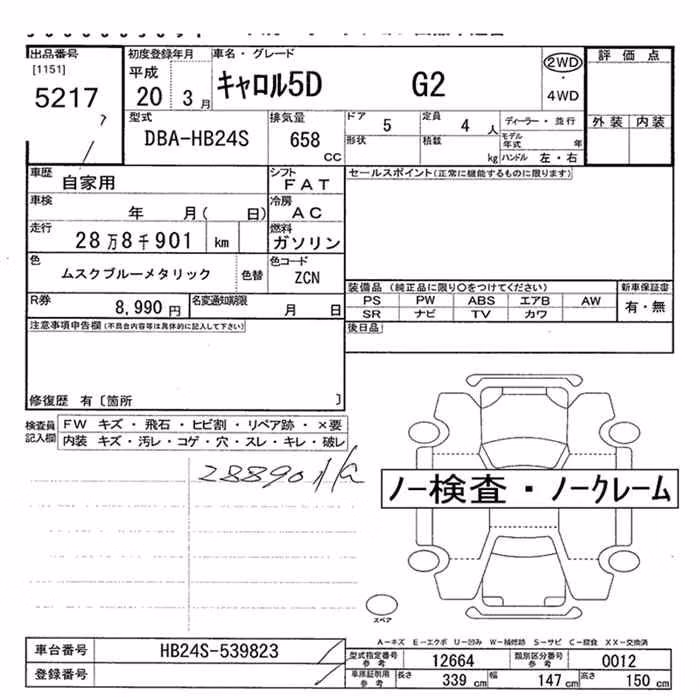 出品番号 初度登録年月 車名・グレード 評価点
[1151] 平成 キャロル5D G2 2WD
5217 20 3月 4WD
型式 排気量 ドア 5 定員 4人 ディーラー・並行 外装 内装
DBA-HB24S 658 CC 形状 積載 kg モデル年式 年
ハンドル 左・右
車歴 自家用 シフト FAT セールスポイント(正常に機能するものに限ります)
車検 年 月( 日) 冷房 AC
走行 28万8千901 km 燃料 ガソリン
色 ムスクブルーメタリック 色替 色コード ZCN
装備品 (純正品に限り○をつけてください) 新車保証書
R券 8,990円 名変通知期限 月 日 PS PW ABS エアB AW 有・無
SR ナビ TV カワ
注意事項申告欄(不具合内容等は具体的に記入して下さい) 後日品
修復歴 有〔箇所 〕
検査員記入欄 FW キズ・飛石・ヒビ割・リペア跡・×要
内装 キズ・汚レ・コゲ・穴・スレ・キレ・破レ
288901
ノー検査・ノークレーム
スペア
A-キズ E-エクボ U-凹み W-補修跡 S-サビ C-腐食 XX-交換済
車台番号 HB24S-539823 型式指定番号 参考 12664 類別区分番号 参考 0012
登録番号 車庫証明用 参考 長さ 339 cm 幅 147 cm 高さ 150 cm